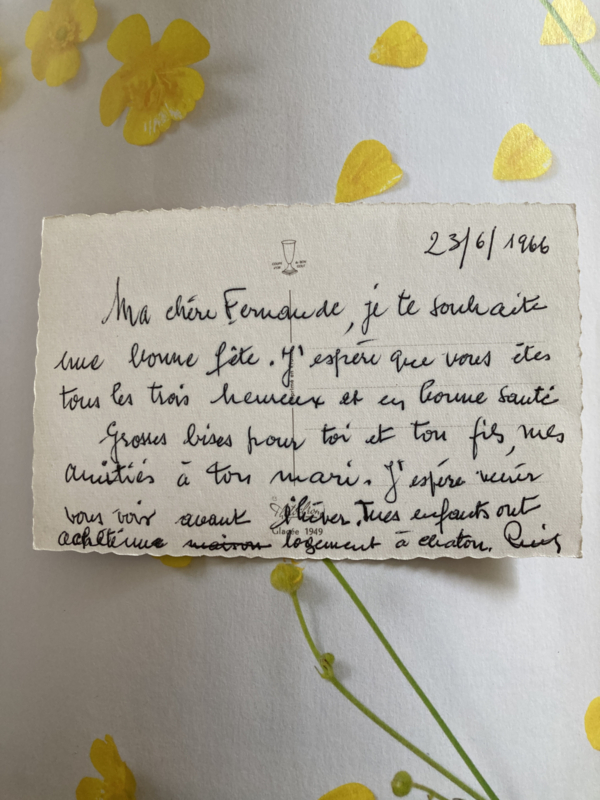 23/6/1966
Ma chére Fernande, je te souhaite
une bonne fête. J'espére que vous êtes
tous les trois heureux et en bonne santé
Grosses bises pour toi et ton fils, mes
amitiés à ton mari. J'espére venir
vous voir avant l'hiver. mes enfants ont
Glacée 1949
achité une maison logement à chaton.